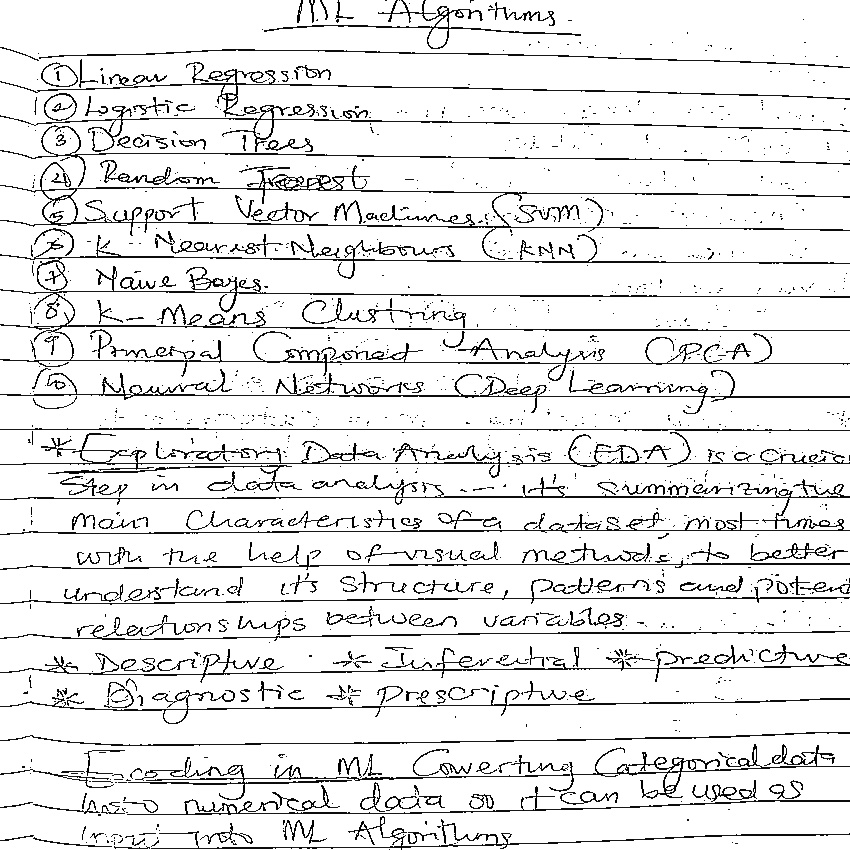 ML Algorithms.
① Linear Regression
② Logistic Regression
③ Decision Trees
④ Random Forest
⑤ Support Vector Machines (SVM)
⑥ K Nearest Neighbours (KNN)
⑦ Naive Bayes.
⑧ K-Means Clustring
⑨ Principal Component Analysis (PCA)
⑩ Neural Networks (Deep Learning)
* Exploratory Data Analysis (EDA) is a crucia
Step in data analysis. It's summarizing the
main Characteristics of a dataset, most times
with the help of visual methods, to better
understand it's structure, patterns and poten
relationships between variables.
* Descriptive * Inferential * predictive
* Diagnostic * prescriptive
Encoding in ML Converting Categorical data
into numerical data so it can be used as
input into ML Algorithms